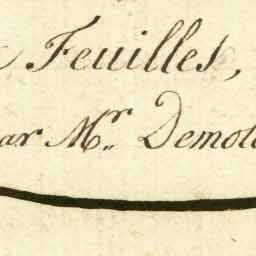 Feuilles,
par Mr. Demo